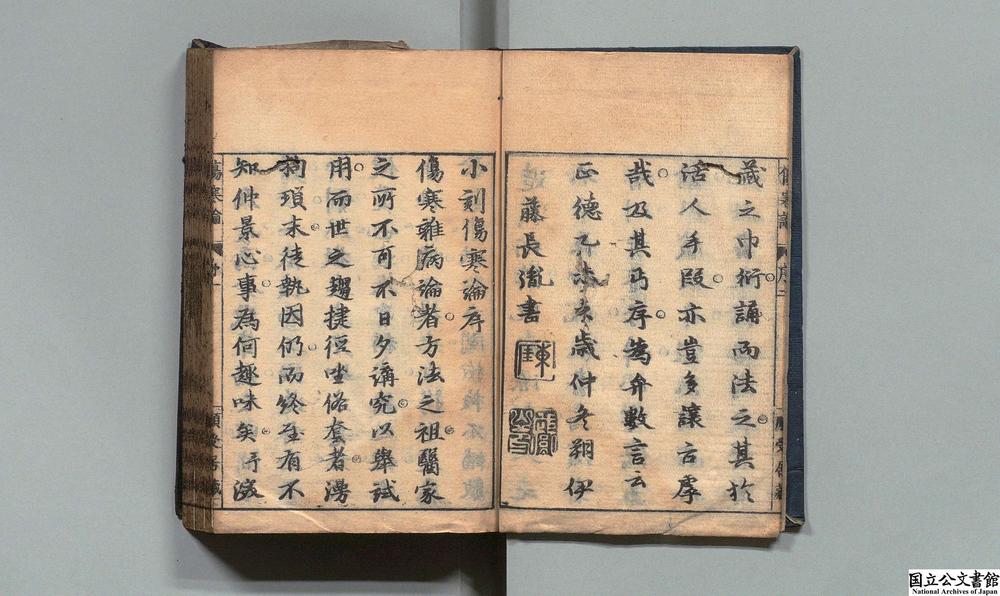 蔵之巾衍誦而法之其於
活人手段亦豈多讓古虖
哉及其丐序為弁數言云
正德乙未歲仲冬朔伊
藤長胤書
小刻傷寒論序
傷寒雜病論者方法之祖醫家
之所不可不日夕講究以舉試
用而世之趨捷徑坐俗套者漫
狥瑣末徒執因仍而終至有不
知仲景心事為何趣味矣可
傷寒論
序二
傷寒論
国立公文書館
National Archives of Japan